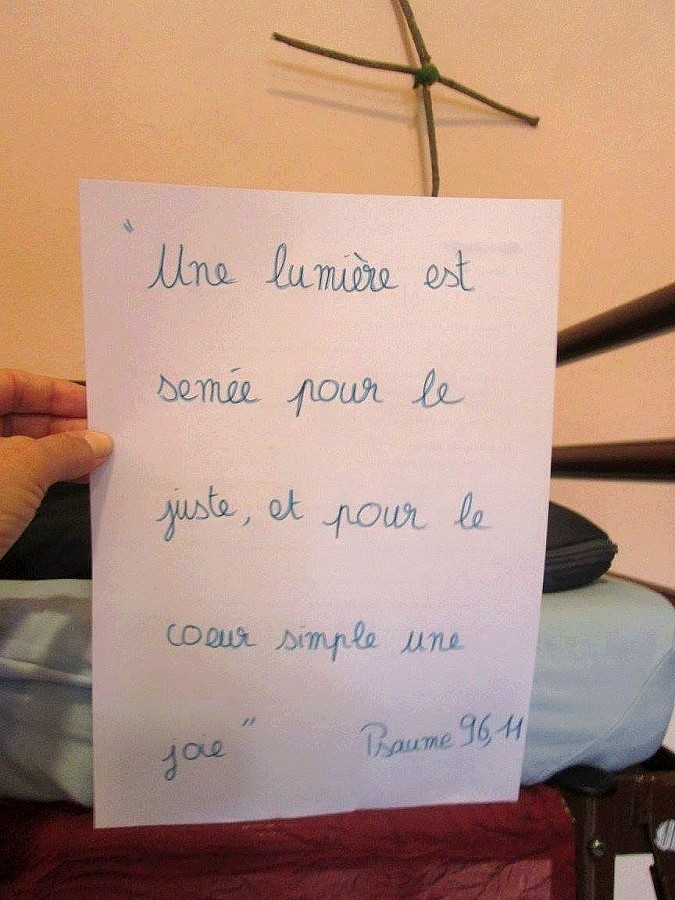 " Une lumière est
semée pour le
juste, et pour le
coeur simple une
joie" Psaume 96,11